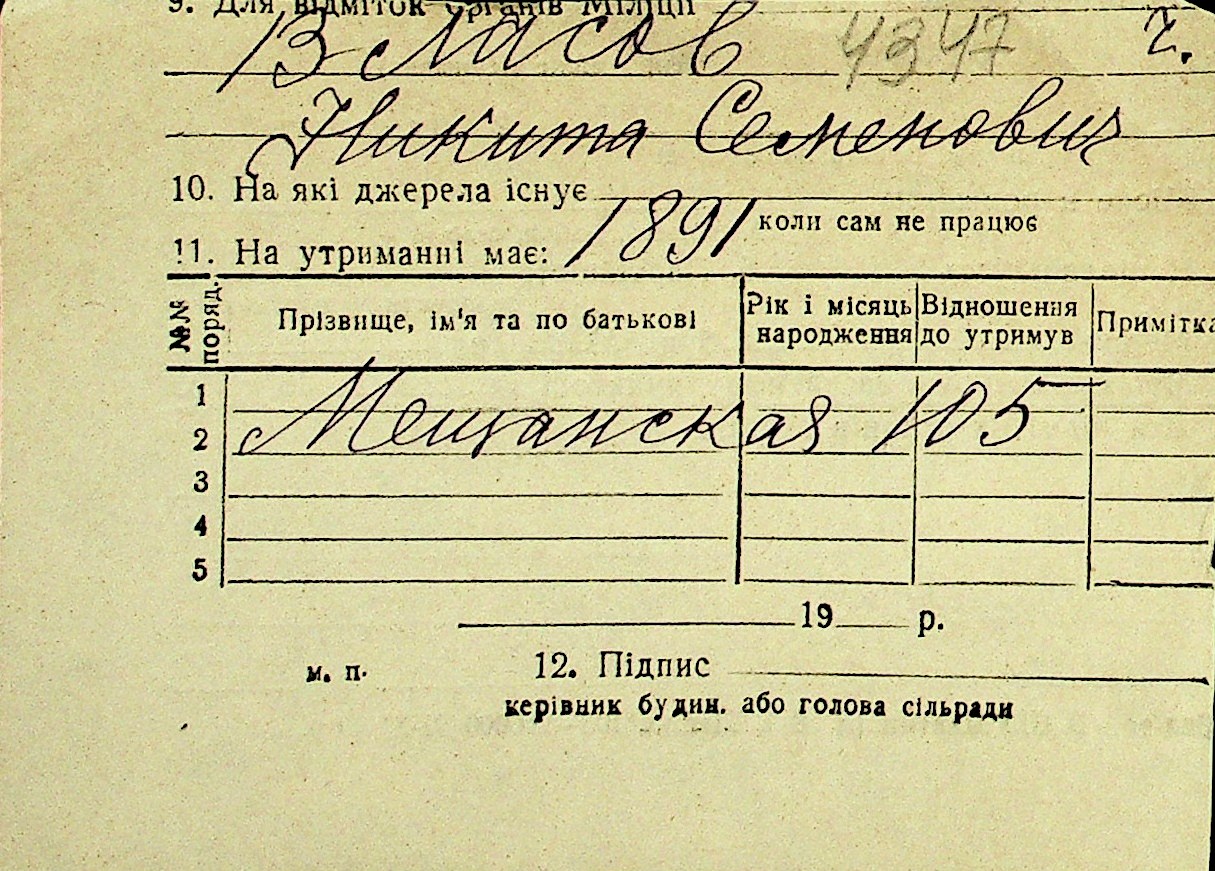 9. Для відміток органів Міліції
Власов 4347 г.
Никита Семенович
10. На які джерела існує
коли сам не працює
11. На утриманні має: 1891
№№ поряд. Прізвище, ім'я та по батькові Рік і місяць народження Відношення до утримув Примітка
1
2 Мещанская 105
3
4
5
19 р.
м. п. 12. Підпис
керівник будин. або голова сільради